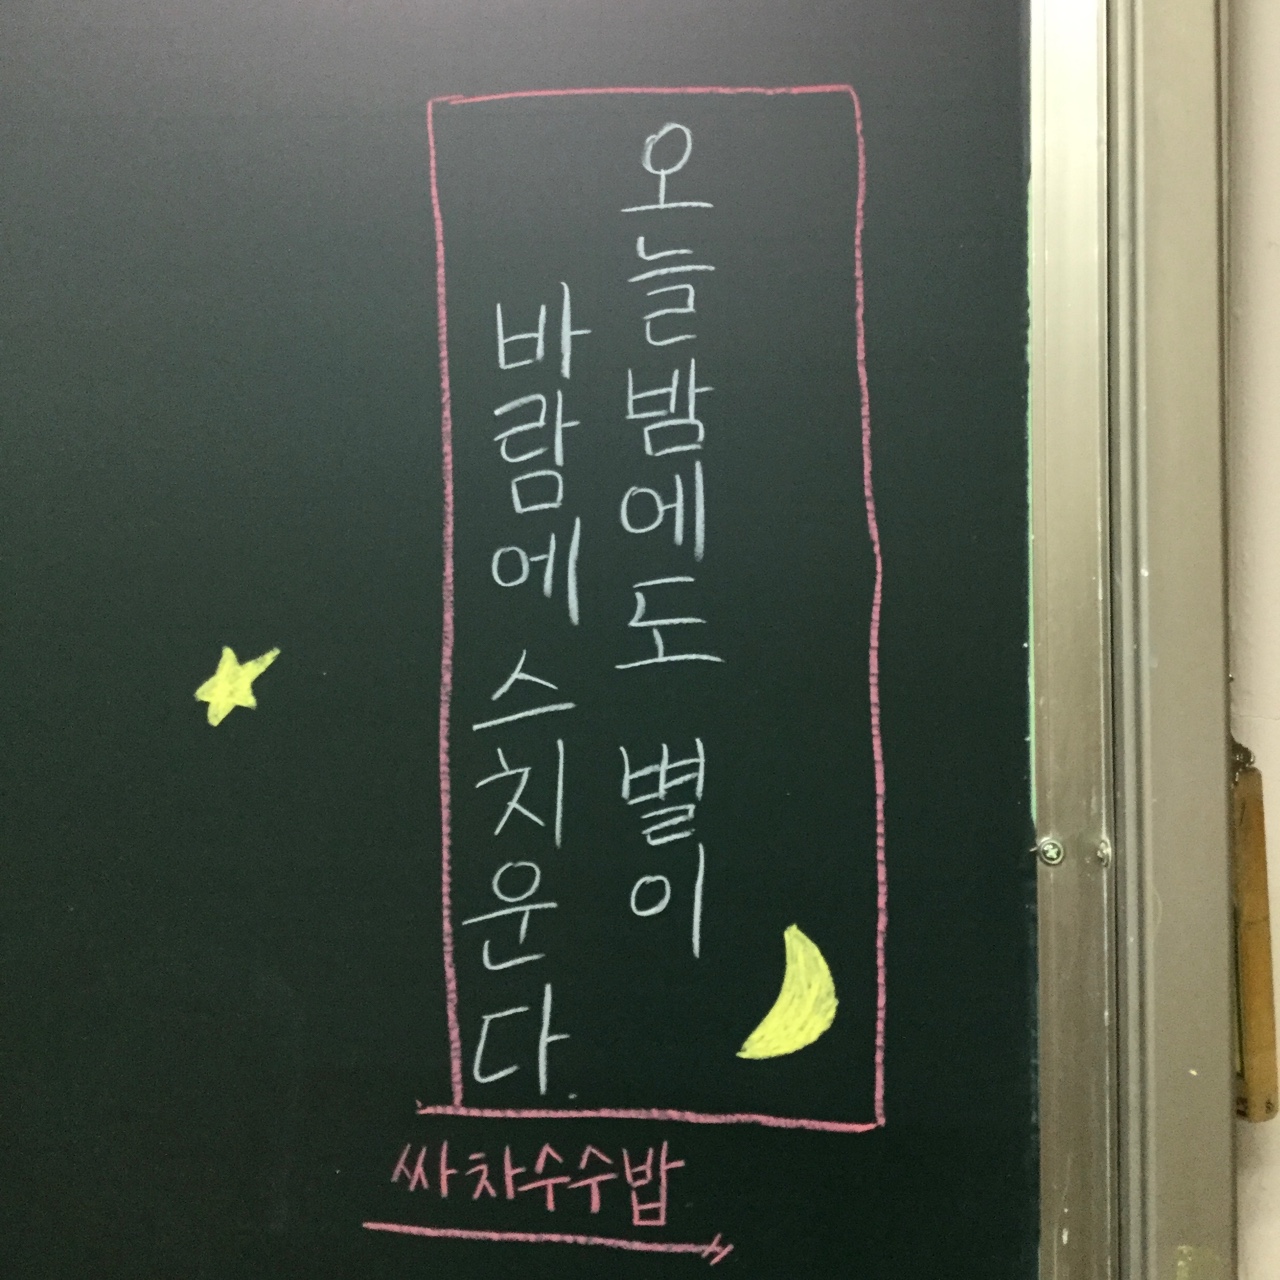 오늘밤에도 별이
바람에 스치운다.
싸차수수밥